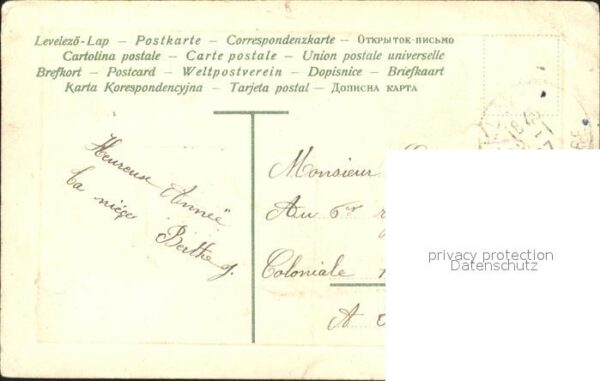 Levelező-Lap — Postkarte — Correspondenzkarte — Открыток-письмо
Cartolina postale — Carte postale — Union postale universelle
Brefkort — Postcard — Weltpostverein — Dopisnice — Briefkaart
Karta Korespondencyjna — Tarjeta postal — Дописна карта
Heureuse Année
Ta nièce
Berthe J.
Monsieur
Au 6er
Coloniale
A
privacy protection
Datenschutz